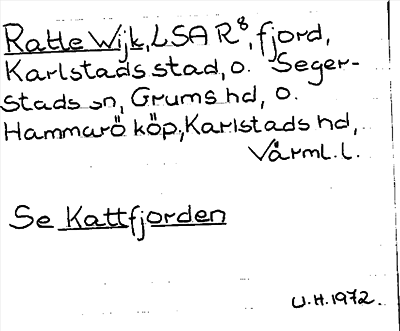 Ratte Wijk, LSA R⁸, fjord,
Karlstads stad, o. Seger-
stads sn, Grums hd, o.
Hammarö köp., Karlstads hd,
Värml. l.
Se Kattfjorden
U.H. 1972.